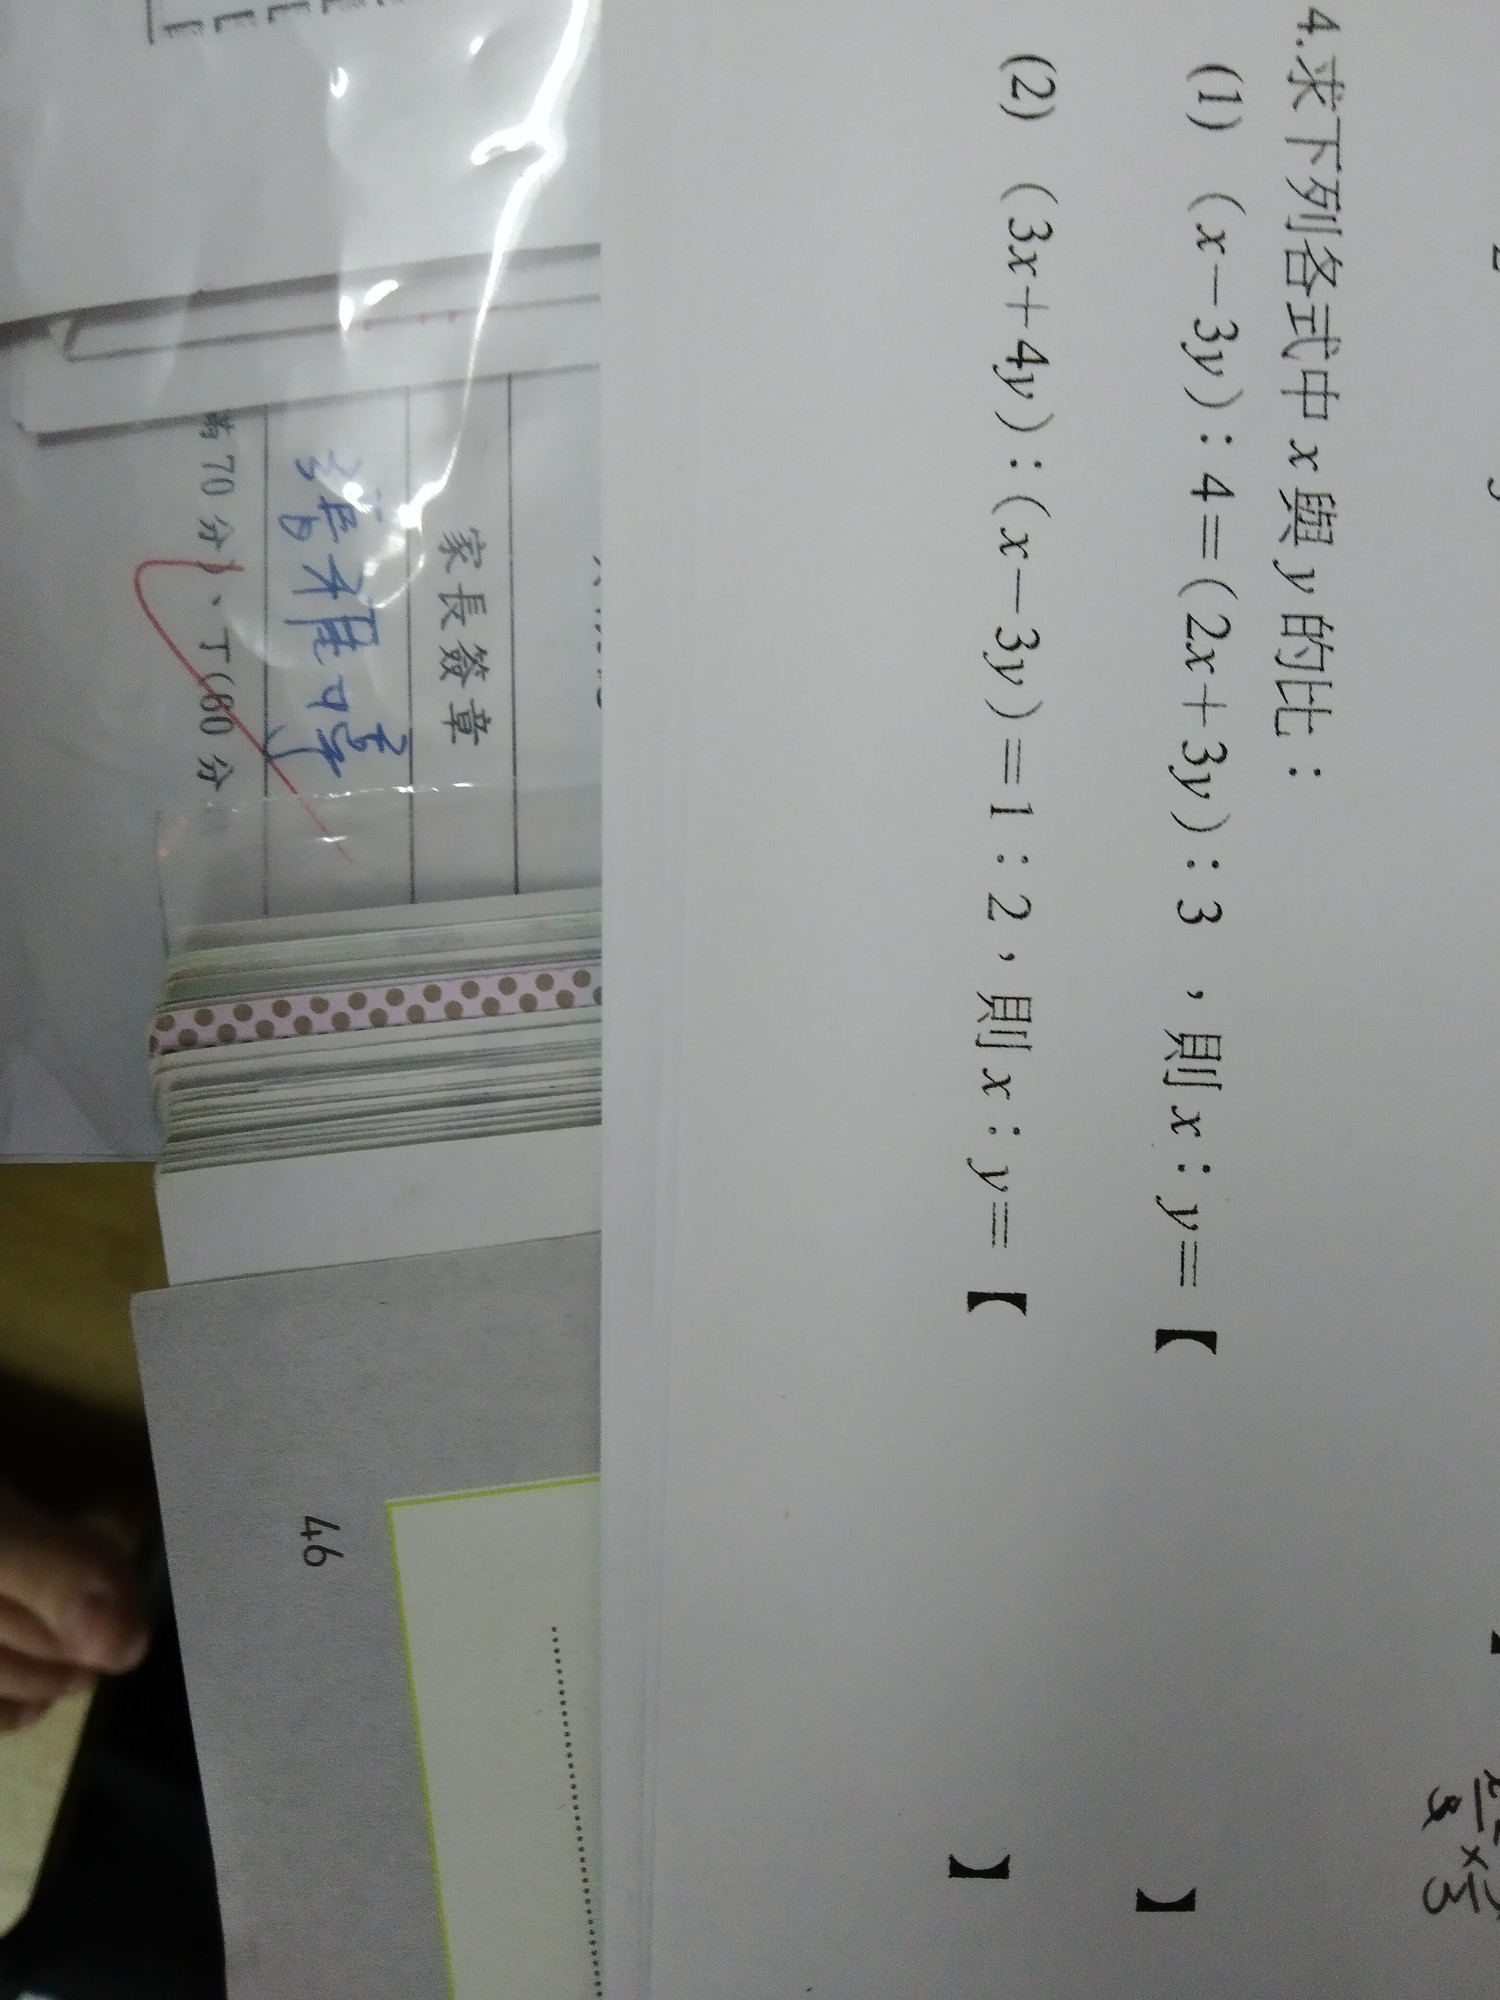 4.求下列各式中x與y的比：
(1) (x－3y)：4＝(2x＋3y)：3 ，則x：y＝【 】
(2) (3x＋4y)：(x－3y)＝1：2，則x：y＝【 】
家長簽章
70分)、丁(60分
46